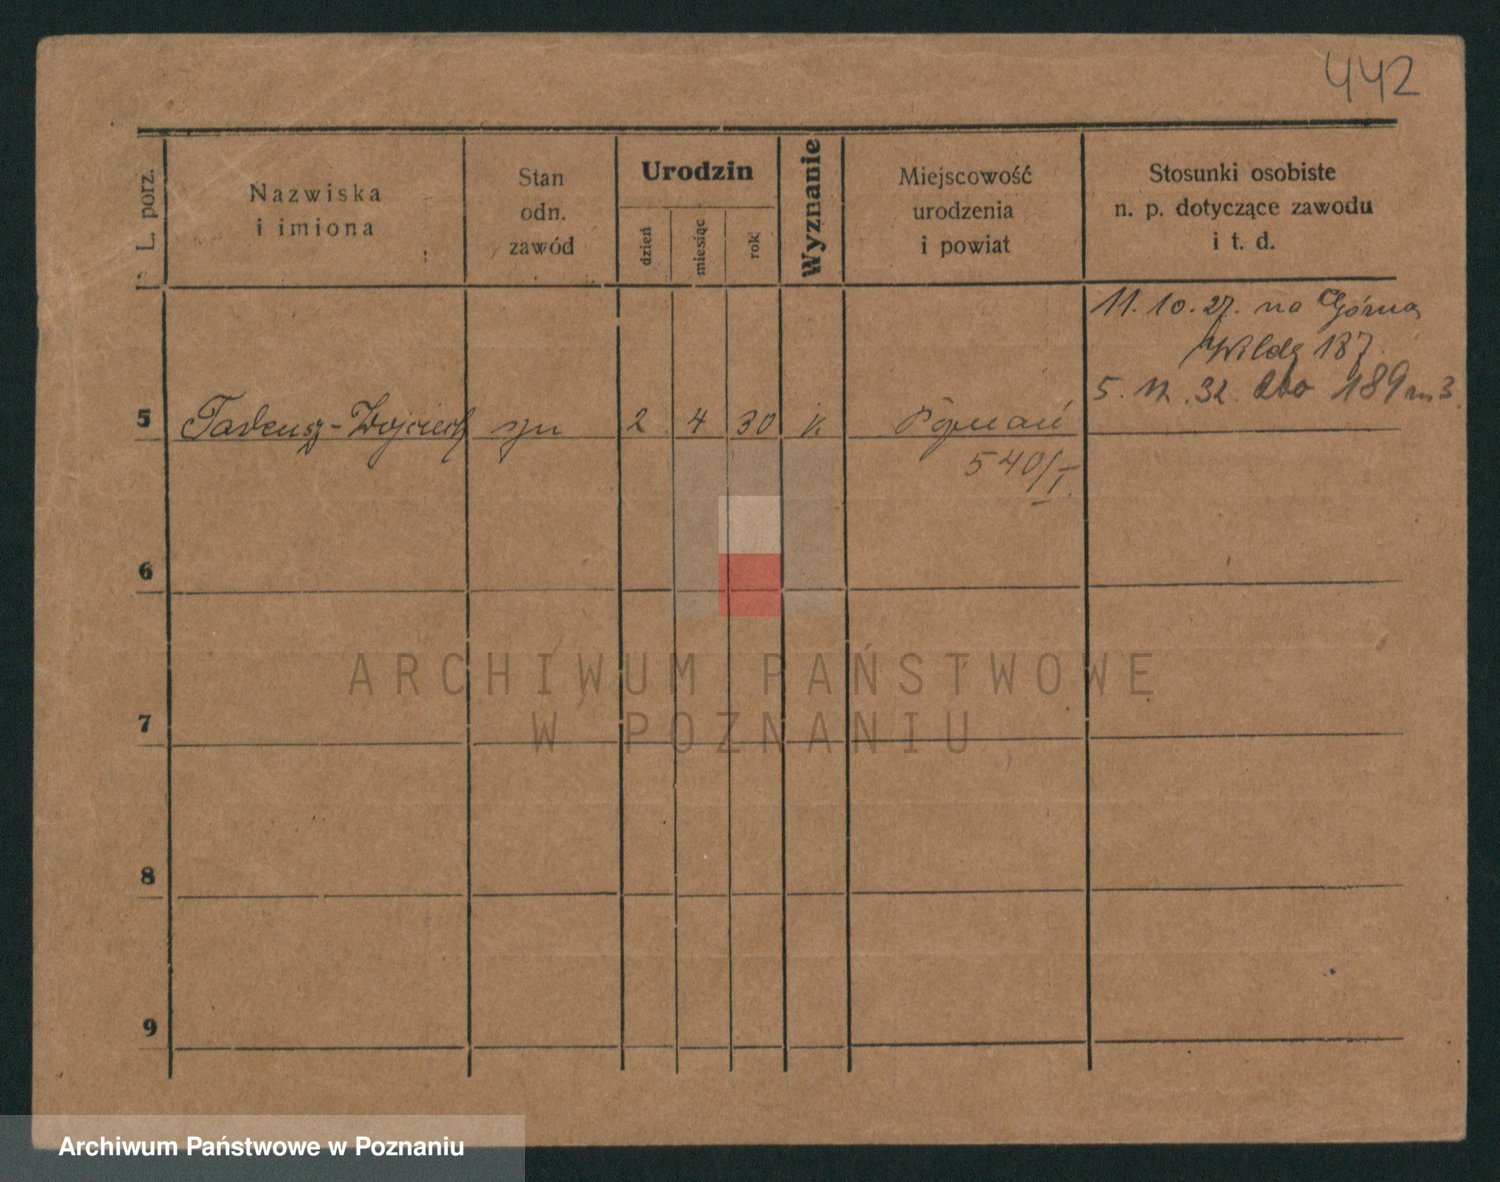 442
L. porz.
Nazwiska
i imiona
Stan
odn.
zawód
Urodzin
dzień
miesiąc
rok
Wyznanie
Miejscowość
urodzenia
i powiat
Stosunki osobiste
n. p. dotyczące zawodu
i t. d.
11. 10. 27. na Górną
Wildę 187.
5. 12. 32. 189 m 3.
5 Tadeusz-Wojciech syn 2 4 30 k Poznań
540/I.
6
7
8
9
ARCHIWUM PAŃSTWOWE
W POZNANIU
Archiwum Państwowe w Poznaniu